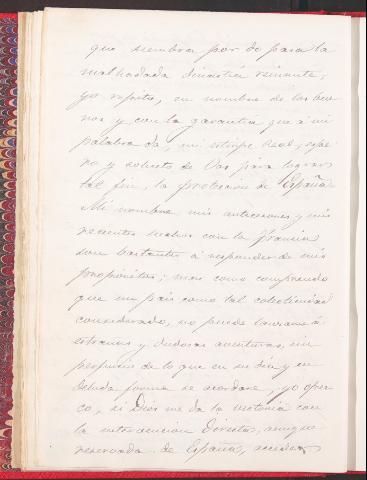 que siembra por do pasa la
malhadada dinastía reinante,
yo repito, en nombre de los bue-
nos y con la garantía que a mi
palabra da, mi estirpe Real, espe-
ro y solicito de Vos para lograr
tal fin, la protección de España.
Mi nombre mis antecesores y mis
recientes con la Francia
son bastantes á responder de mis
propósitos; mas como comprendo
que un país como tal colectividad
considerado, no puede lanzarse á
extrañas y dudosas aventuras, sin
perjuicio de lo que en su día y en
debida forma se acordare, yo ofrez-
co, si Dios me da la victoria con
la intervención directa, aunque
reservada de España, acceder